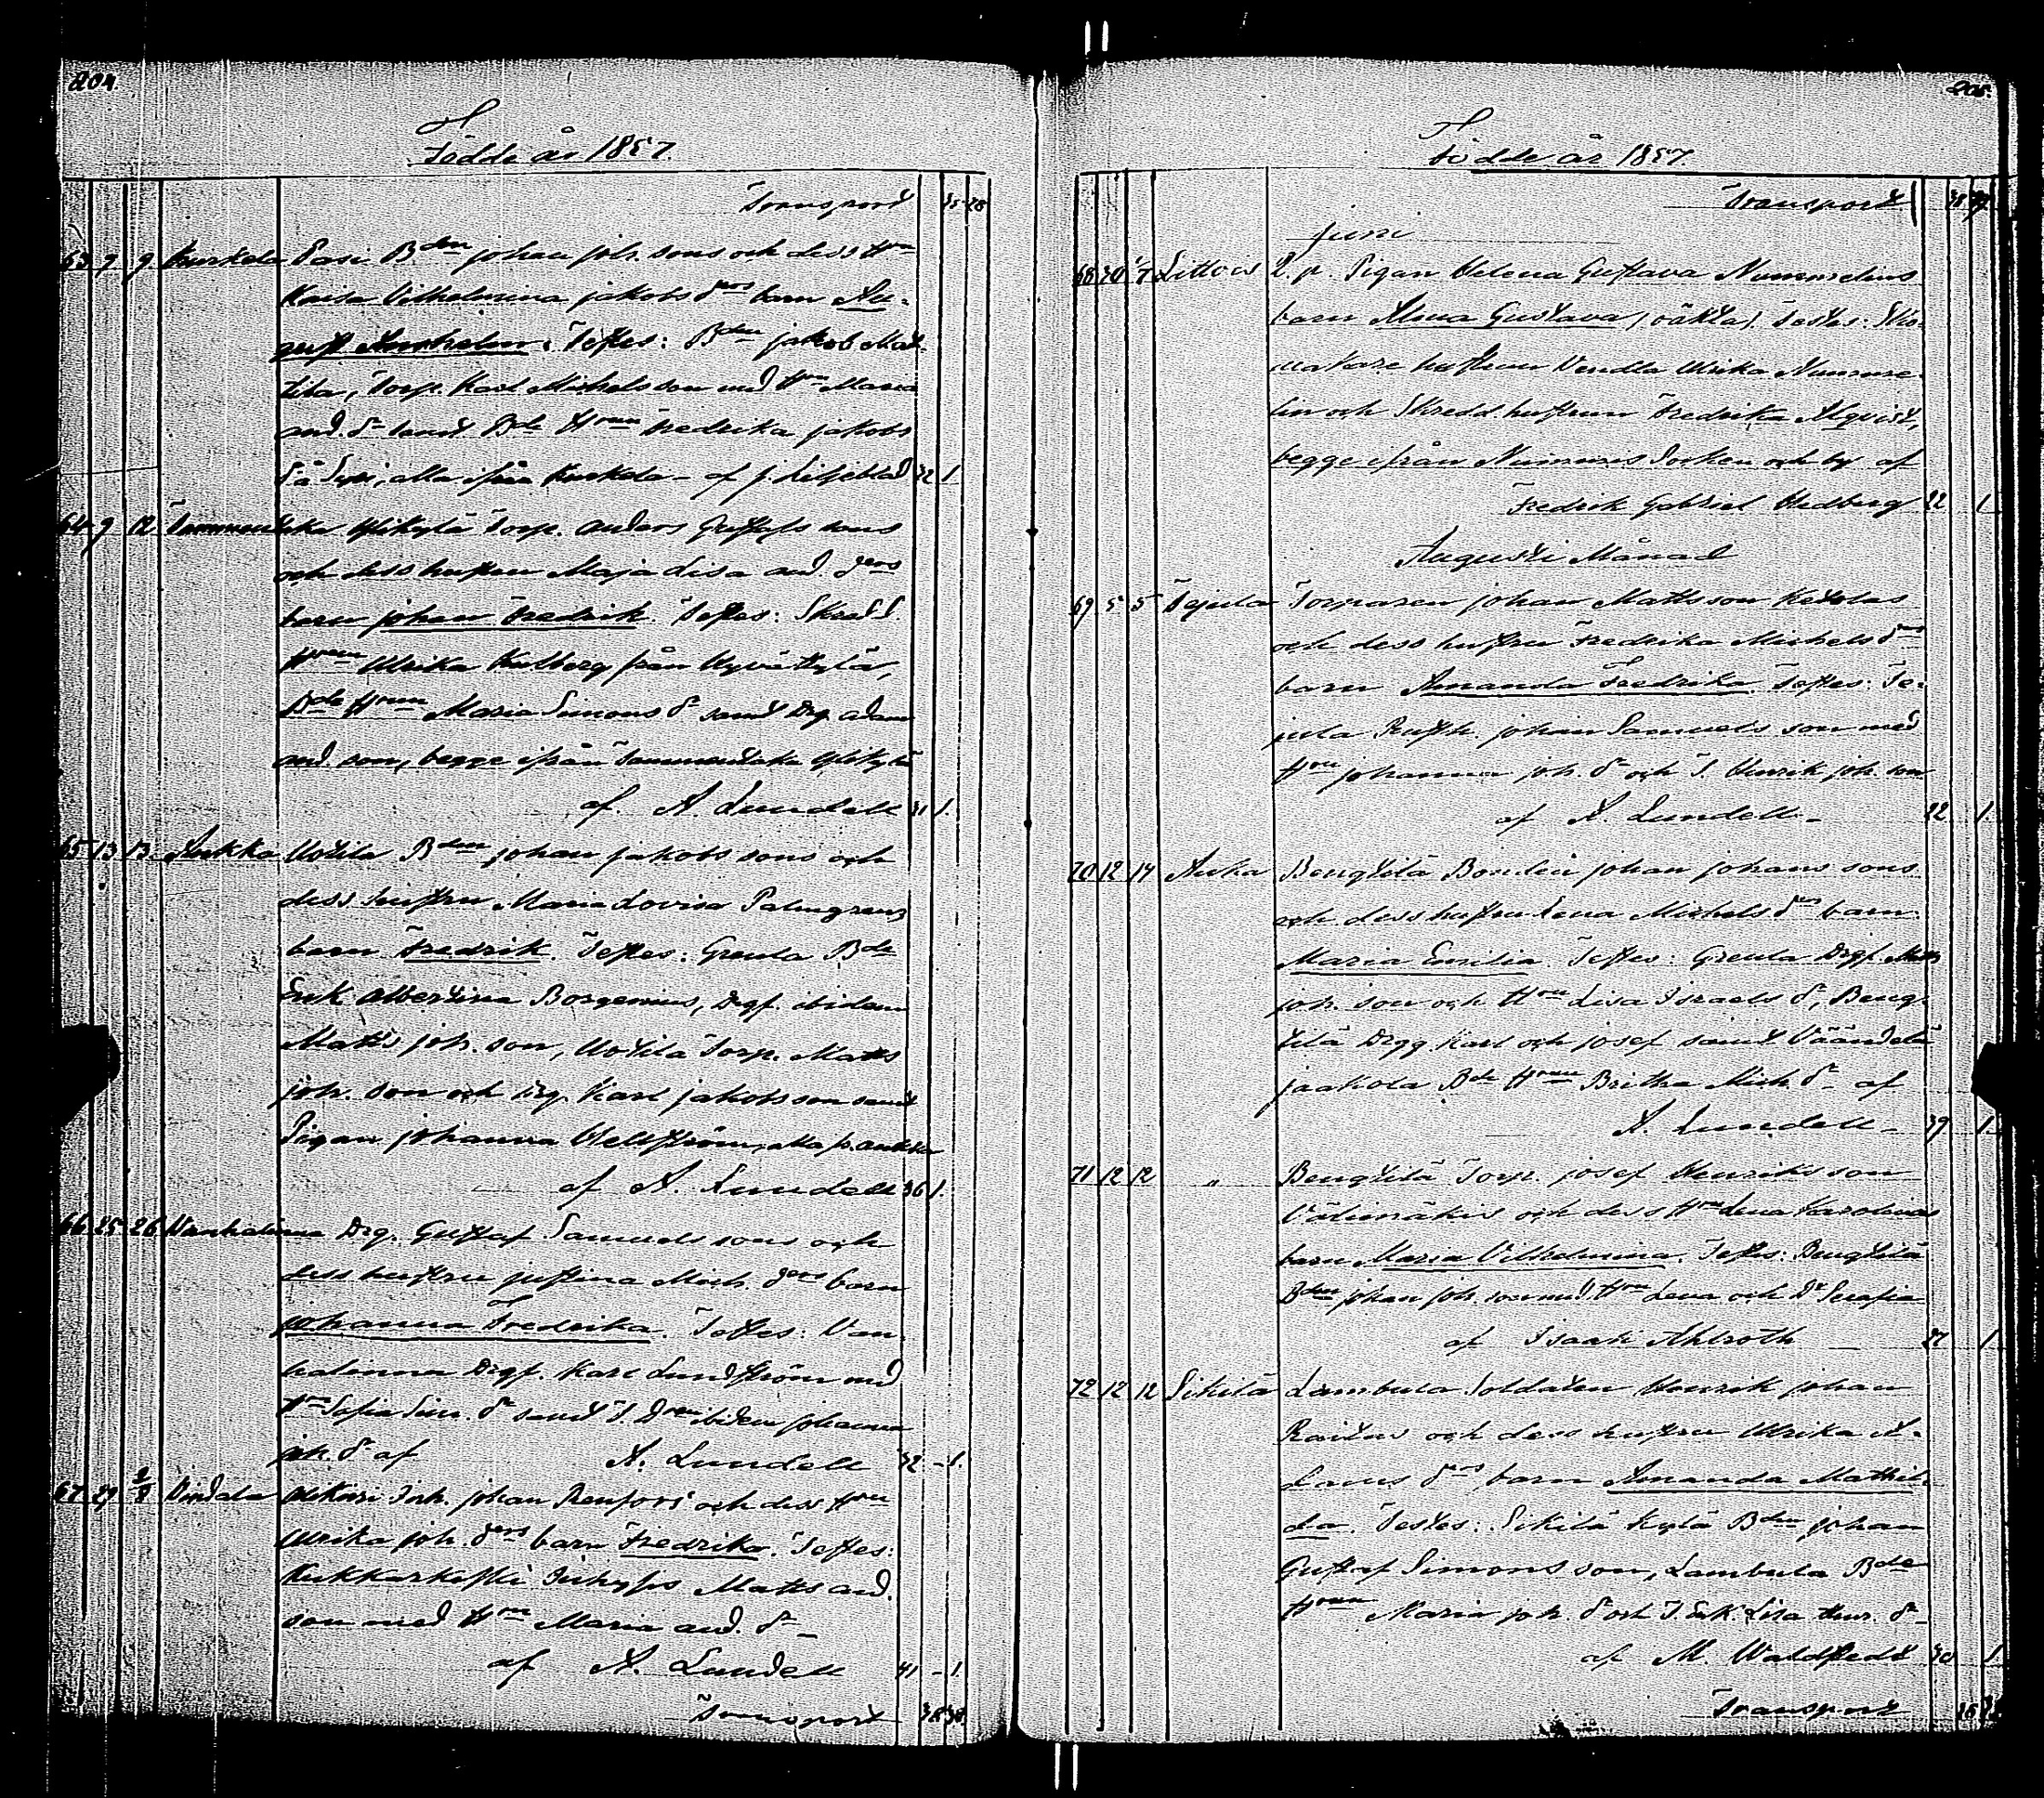 204.
Födde år 1857.
Transport 35 28
63 9 9 Kurkela Pasi Bden johan joh. sons och dess Hru
Kaisa Vilhelmina jakobs ders barn Au-
gust Annhelm. Testes: Bden jakob Mat-
tila, Torp. Karl Michels son med Hru Maria
and. dr samt Bde Hrun Fredrika jakobs
dr å Sipi, alla ifrån Kurkela - af J. Liljeblad 32 1.
64 9 12 Tammentaka Ylikylä Torp. Anders Gustafs sons
och dess hustru Maja Lisa and. ders
barn johan Fredrik. Testes: Skredd.
Hrun Ulrika Kulberg från Hyvättylä,
Bde Hrun Maria Simons dr samt Drg. adam
and. son, begge ifrån Tammentaka Ylikylä
af A. Lundell 31 1.
65 13 13. Aukka Uotila Bden johan jakobs sons och
dess hustru Maria Lovisa Palmgrens
barn Fredrik. Testes: Greula Bde
Enk. Albertina Borgenius, Drgf. ibidem
Matts joh. son, Uotila Torp. Matts
joh. son och Drg. Karl jakobs son samt
Pigan johanna Hellström, alla fr. aukka
af A. Lundell 36 1.
66 25 26 Wanhalinna Drg. Gustaf Samuels sons och
dess hustru justina Mich. ders barn
johanna Fredrika. Testes: Van-
halinna Drgf. Karl Lundström med
Hru Sofia Sim. dr samt T. Dren ibidem johanna
joh. dr af A. Lundell 32 - 1.
67 29 2/8 Kindala Ylikäri Inh. johan Renfors och dess Hru
Ulrika joh. ders barn Fredrika. Testes:
Kukkarkoski Inhyses Matts and.
son med Hru Maria and. dr
af A. Lundell 41 - 1.
Transport 38 30.
205.
Födde år 1857.
Transport 38 30
juni
68 30 1/7 Littois 2. p. Pigan Helena Gustava Nummelins
barn Alma Gustava (oäkta). Testes: Sko-
makare hustrun Vendla Ulrika Numme-
lin och Skredd. hustrun Fredrika Alqvist,
begge ifrån Nummis Socken och by af
Fredrik Gabriel Hedberg 22 1.
Augusti Månad
69 5 5 Tejula Torparen johan Mattsson Ketolas
och dess hustru Fredrika Michels drs
barn Amanda Fredrika. Testes: Te-
jula Rusth. johan Samuels son med
Hru johanna joh. dr och T. Henrik joh. son
af A. Lundell - 22 1.
70 12 14 Auka Bengtilä Bonden johan johans sons
och dess hustru Lena Michels drs barn
Maria Emilia. Testes: Greula Drgf. Matts
joh. son och Hru Lisa Israels dr, Beng-
tilä Drgg. Karl och josef samt Väändelä
jaakola Bde Hrun Britha Mich. dr af
A. Lundell - 39 1.
71 12 12 " Bengtilä Torp. josef Henriks son
Välimäkis och dess Hru Lena Karolinas
barn Maria Vilhelmina. Testes: Bengtilä
Bden johan joh. son med Hru Lena och Dr Serafia
af Isaak Ahlroth 27 1
72 12 12 Sikilä Lambula Soldaten Henrik johan
Raitas och dess hustru Ulrika A-
dams drs barn Amanda Mathil-
da. Testes: Sikilä Kylä Bden johan
Gustaf Simons son, Lambula Bde
Hrun Maria joh. dr och T. Enk. Lisa Henr. dr
af M. Waldstedt 30 1.
Transport